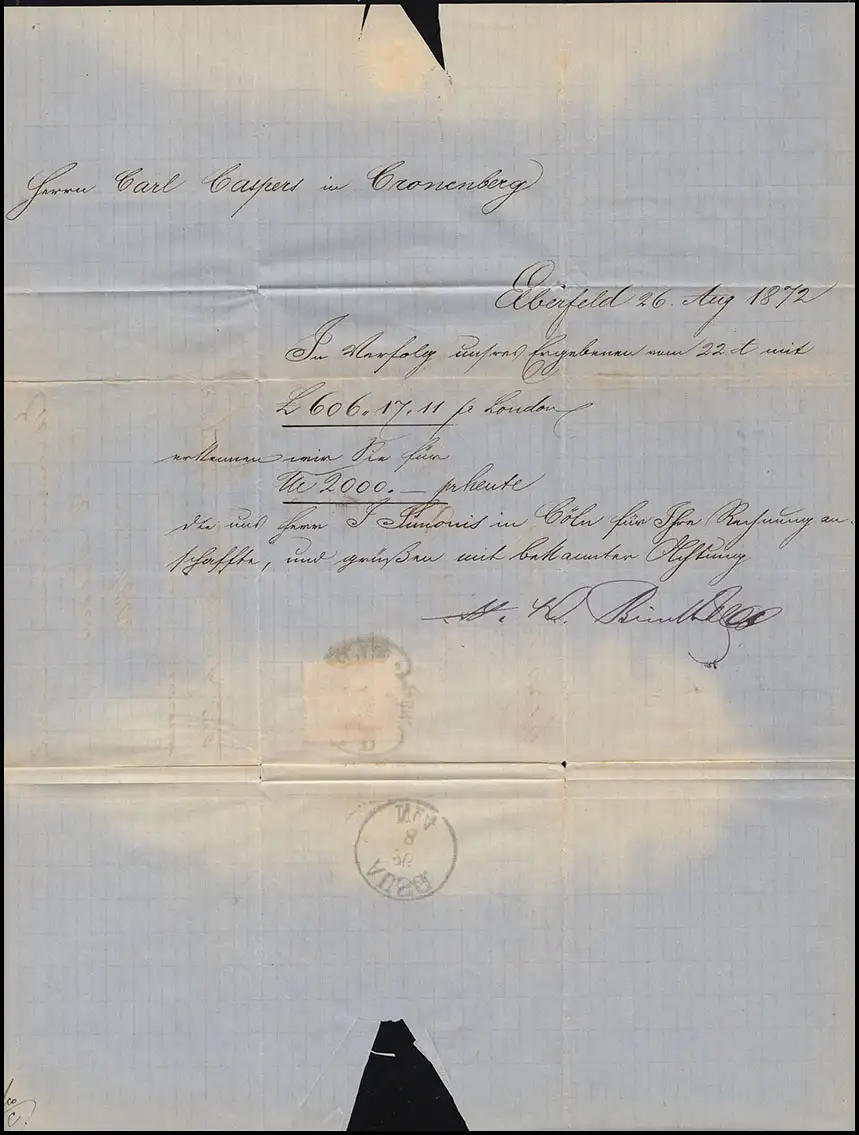 Herrn Carl Caspers in Cronenberg
Elberfeld 26. Aug 1872
In Verfolg unsres Ergebenen vom 22 t mit
£ 606. 17. 11 pr London
erkennen wir Sie für
2000. — pr heute
die uns Herr J Simonis in Cöln für Ihre Rechnung an-
schaffte, und grüßen mit bekannter Achtung